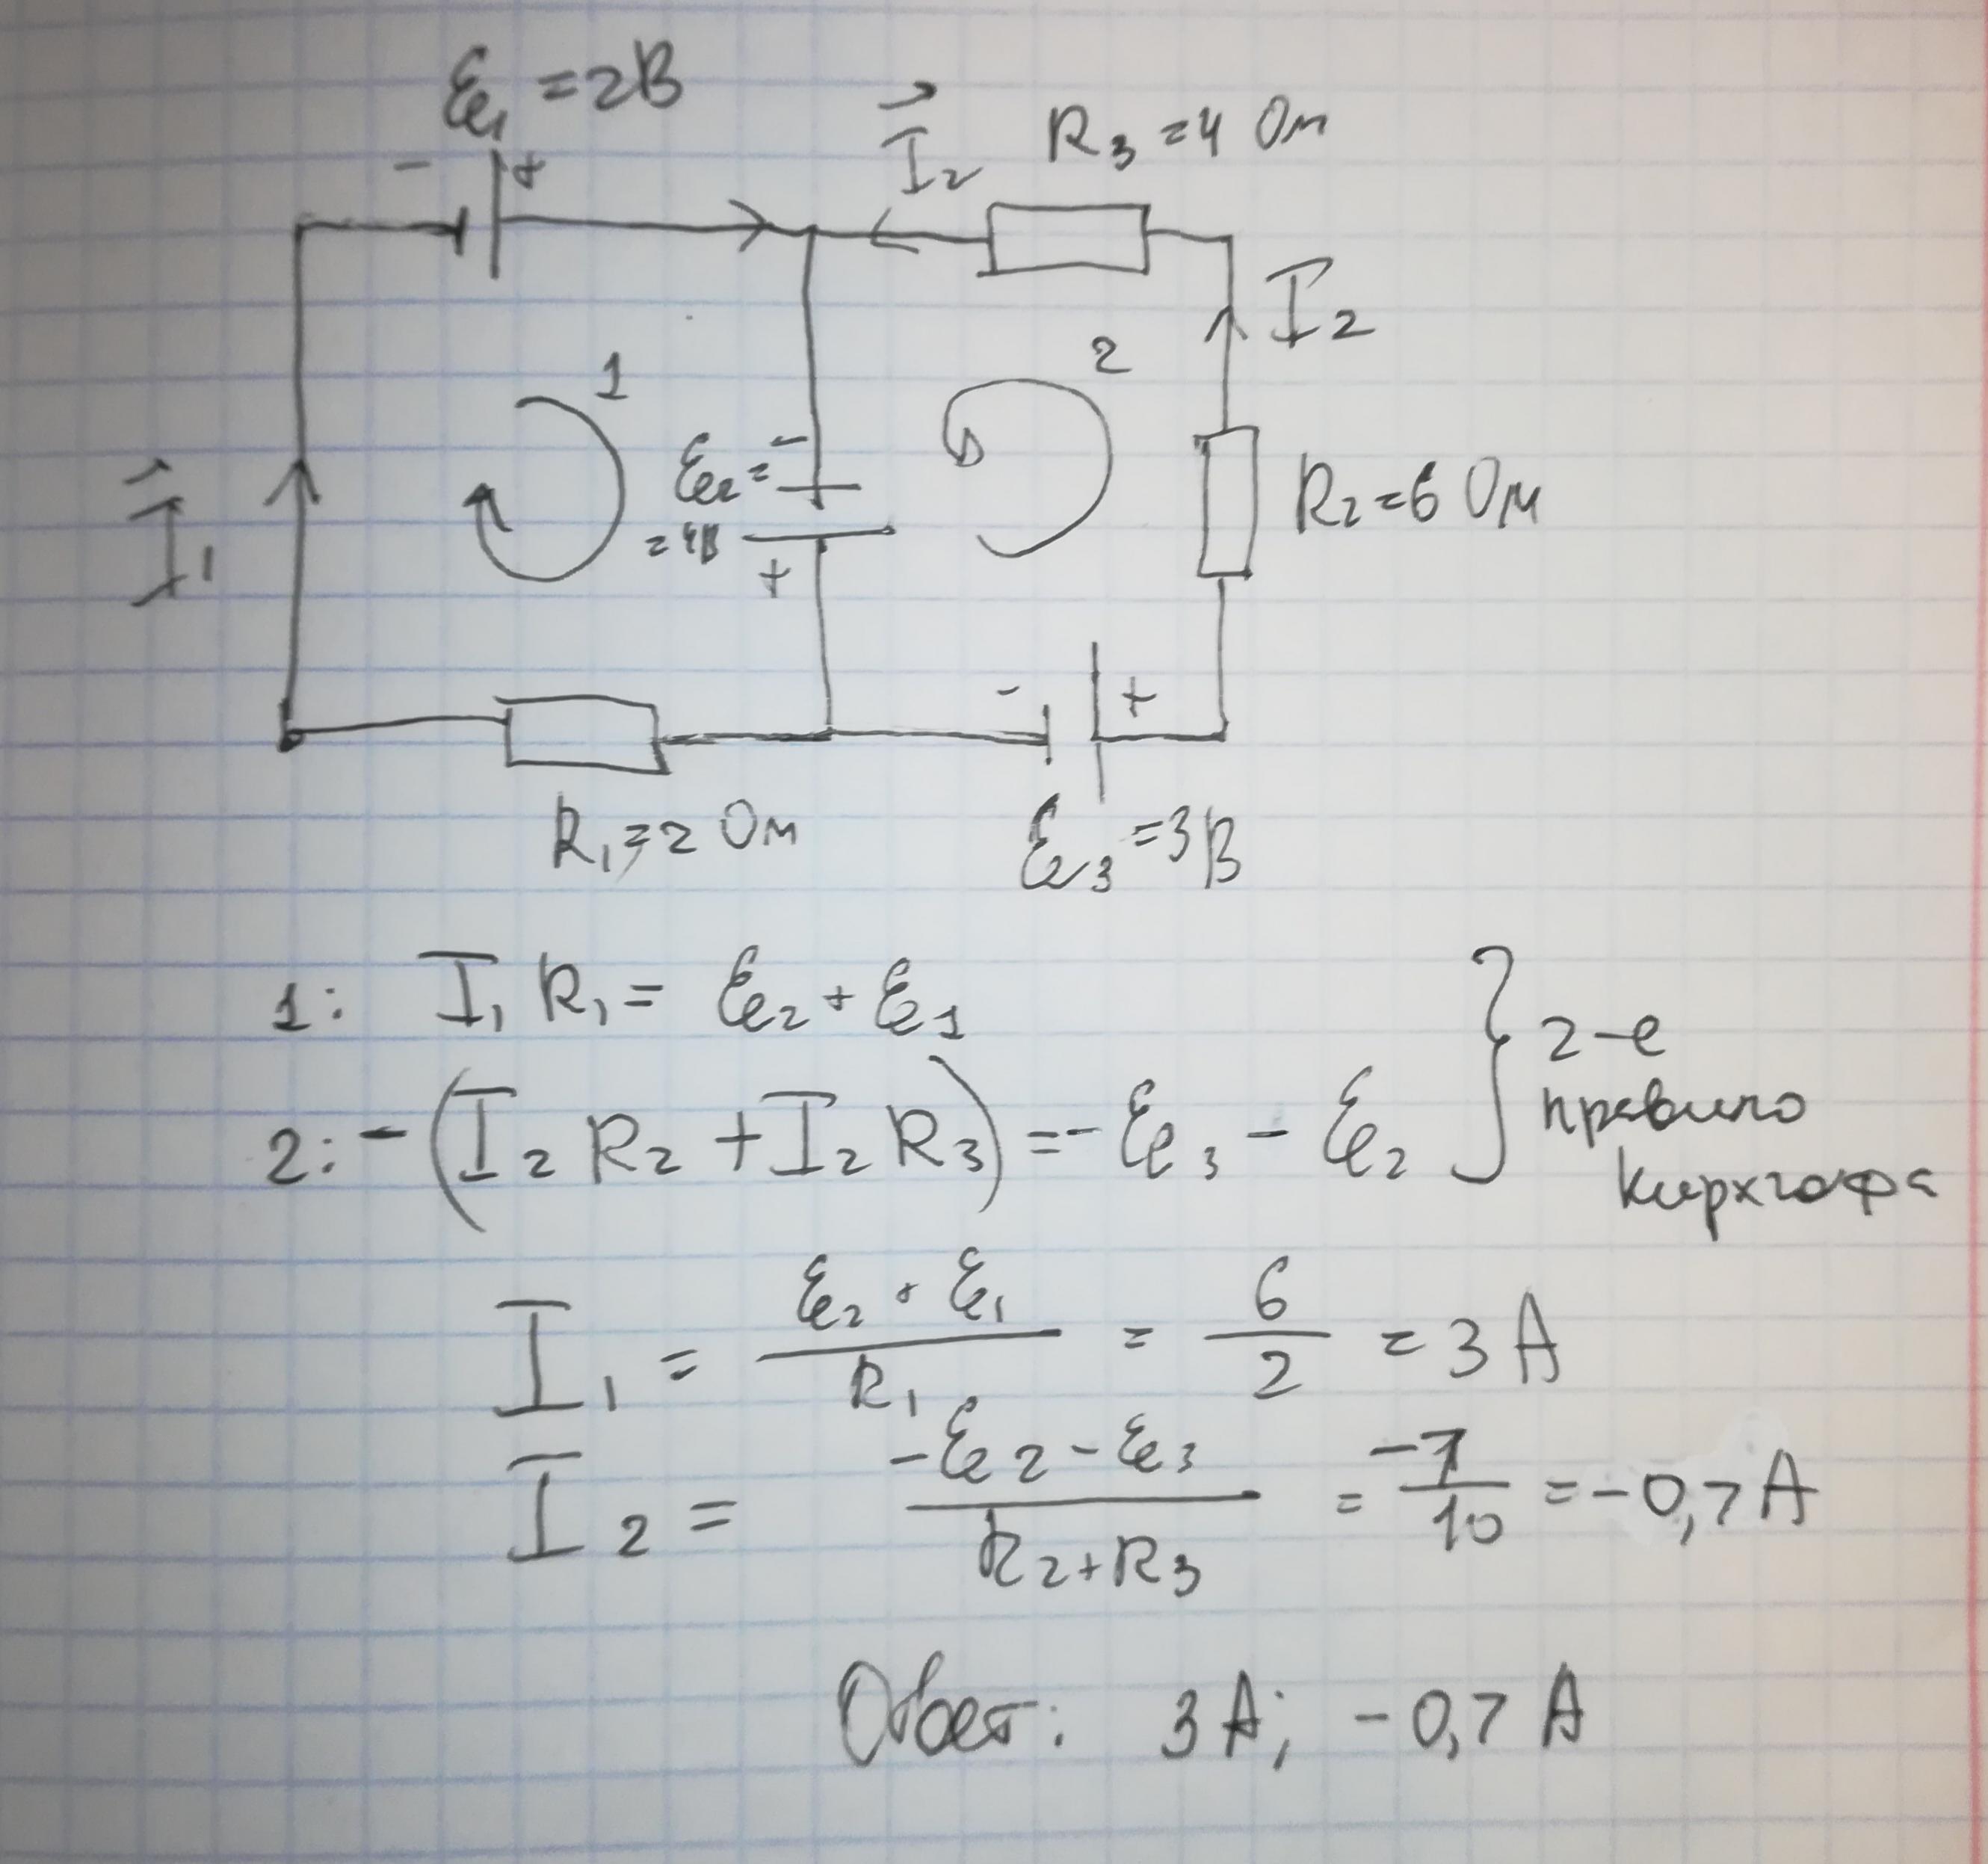 ℰ₁ = 2В
I⃗₂ R₃ = 4 Ом
- +
I₂
1
2
I⃗₁
ℰ₂ = -
= 4В
+
R₂ = 6 Ом
- +
R₁ = 2 Ом
ℰ₃ = 3В
1: I₁ R₁ = ℰ₂ + ℰ₁
2: -(I₂ R₂ + I₂ R₃) = -ℰ₃ - ℰ₂
} 2-е
правило
Кирхгофа
I₁ = (ℰ₂ + ℰ₁)/R₁ = 6/2 = 3 А
I₂ = (-ℰ₂ - ℰ₃)/(R₂ + R₃) = -7/10 = -0,7 А
Ответ: 3 А; -0,7 А